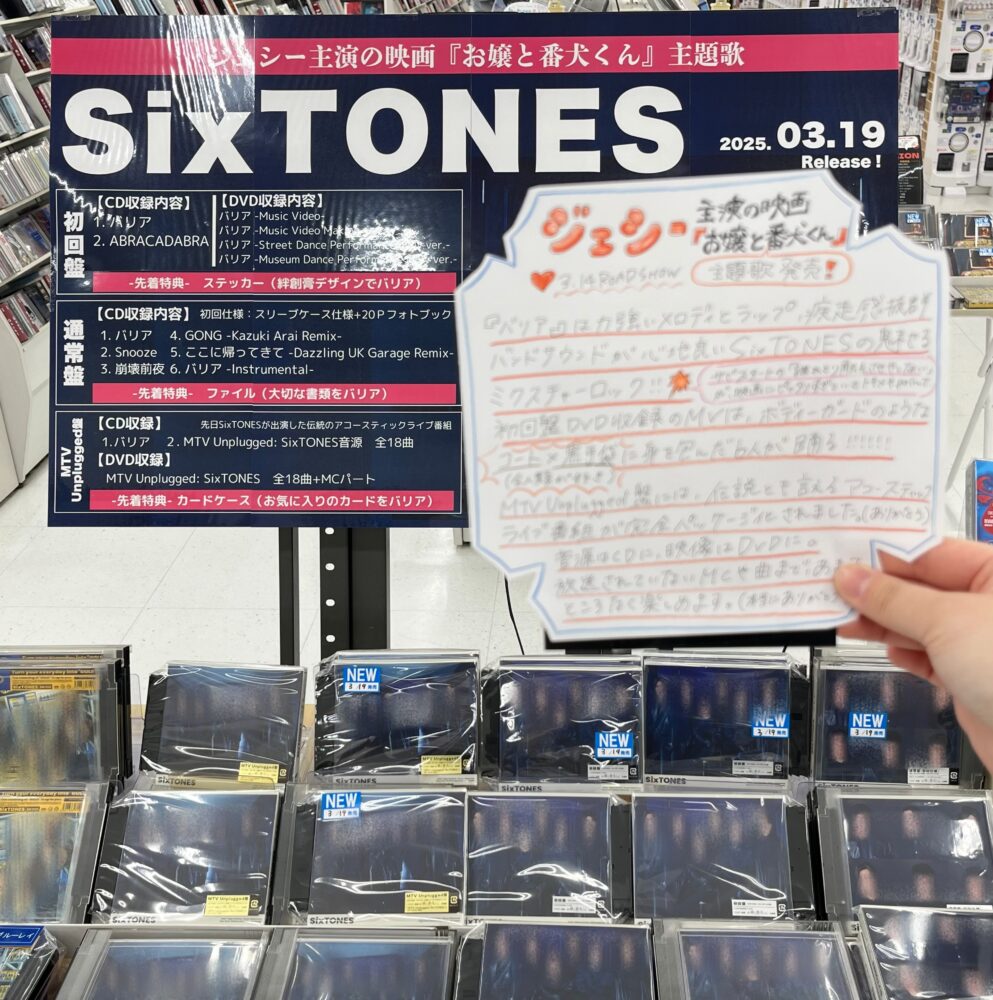 ジェシー主演の映画『お嬢と番犬くん』主題歌
SixTONES
2025. 03.19
Release !
初回盤
【CD収録内容】
1. バリア
2. ABRACADABRA
【DVD収録内容】
バリア -Music Video-
バリア -Music Video
バリア -Street Dance
バリア -Museum Dance
-先着特典- ステッカー（絆創膏デザインでバリア）
通常盤
【CD収録内容】 初回仕様：スリーブケース仕様+20Pフォトブック
1. バリア 4. GONG -Kazuki Arai Remix-
2. Snooze 5. ここに帰ってきて -Dazzling UK Garage Remix-
3. 崩壊前夜 6. バリア -Instrumental-
-先着特典- ファイル（大切な書類をバリア）
MTV Unplugged盤
【CD収録】 先日SixTONESが出演した伝統のアコースティックライブ番組
1. バリア 2. MTV Unplugged: SixTONES音源 全18曲
【DVD収録】
MTV Unplugged: SixTONES 全18曲+MCパート
-先着特典- カードケース（お気に入りのカードをバリア）
ジェシー 主演の映画
『お嬢と番犬くん』
主題歌 発売！
3.14 ROADSHOW
『バリア』は力強いメロディとラップ、疾走感抜群
バンドサウンドが心地良いSixTONESの魅せる
ミクスチャーロック!!
初回盤DVD収録のMVは、ボディーガードのような
コート×黒手袋に身を包んだ6人が踊る!!!!!!
MTV Unplugged盤には、伝説とも言えるアコースティック
ライブ番組が完全パッケージ化されました。(ありがとう)
音源はCDに、映像はDVDに。
放送されていないMCや曲まで、
ところなく楽しめます。(本当にありがとう
NEW
3/19発売
NEW
3/19発売
NEW
3/19発売
NEW
3/19発売
NEW
3/19発売
MTV Unplugged盤
MTV Unplugged盤
MTV Unplugged盤
MTV Unplugged盤
SixTONES
SixTONES
SixTONES
SixTONES
SixTONES
SixTONES
ブルーレイ